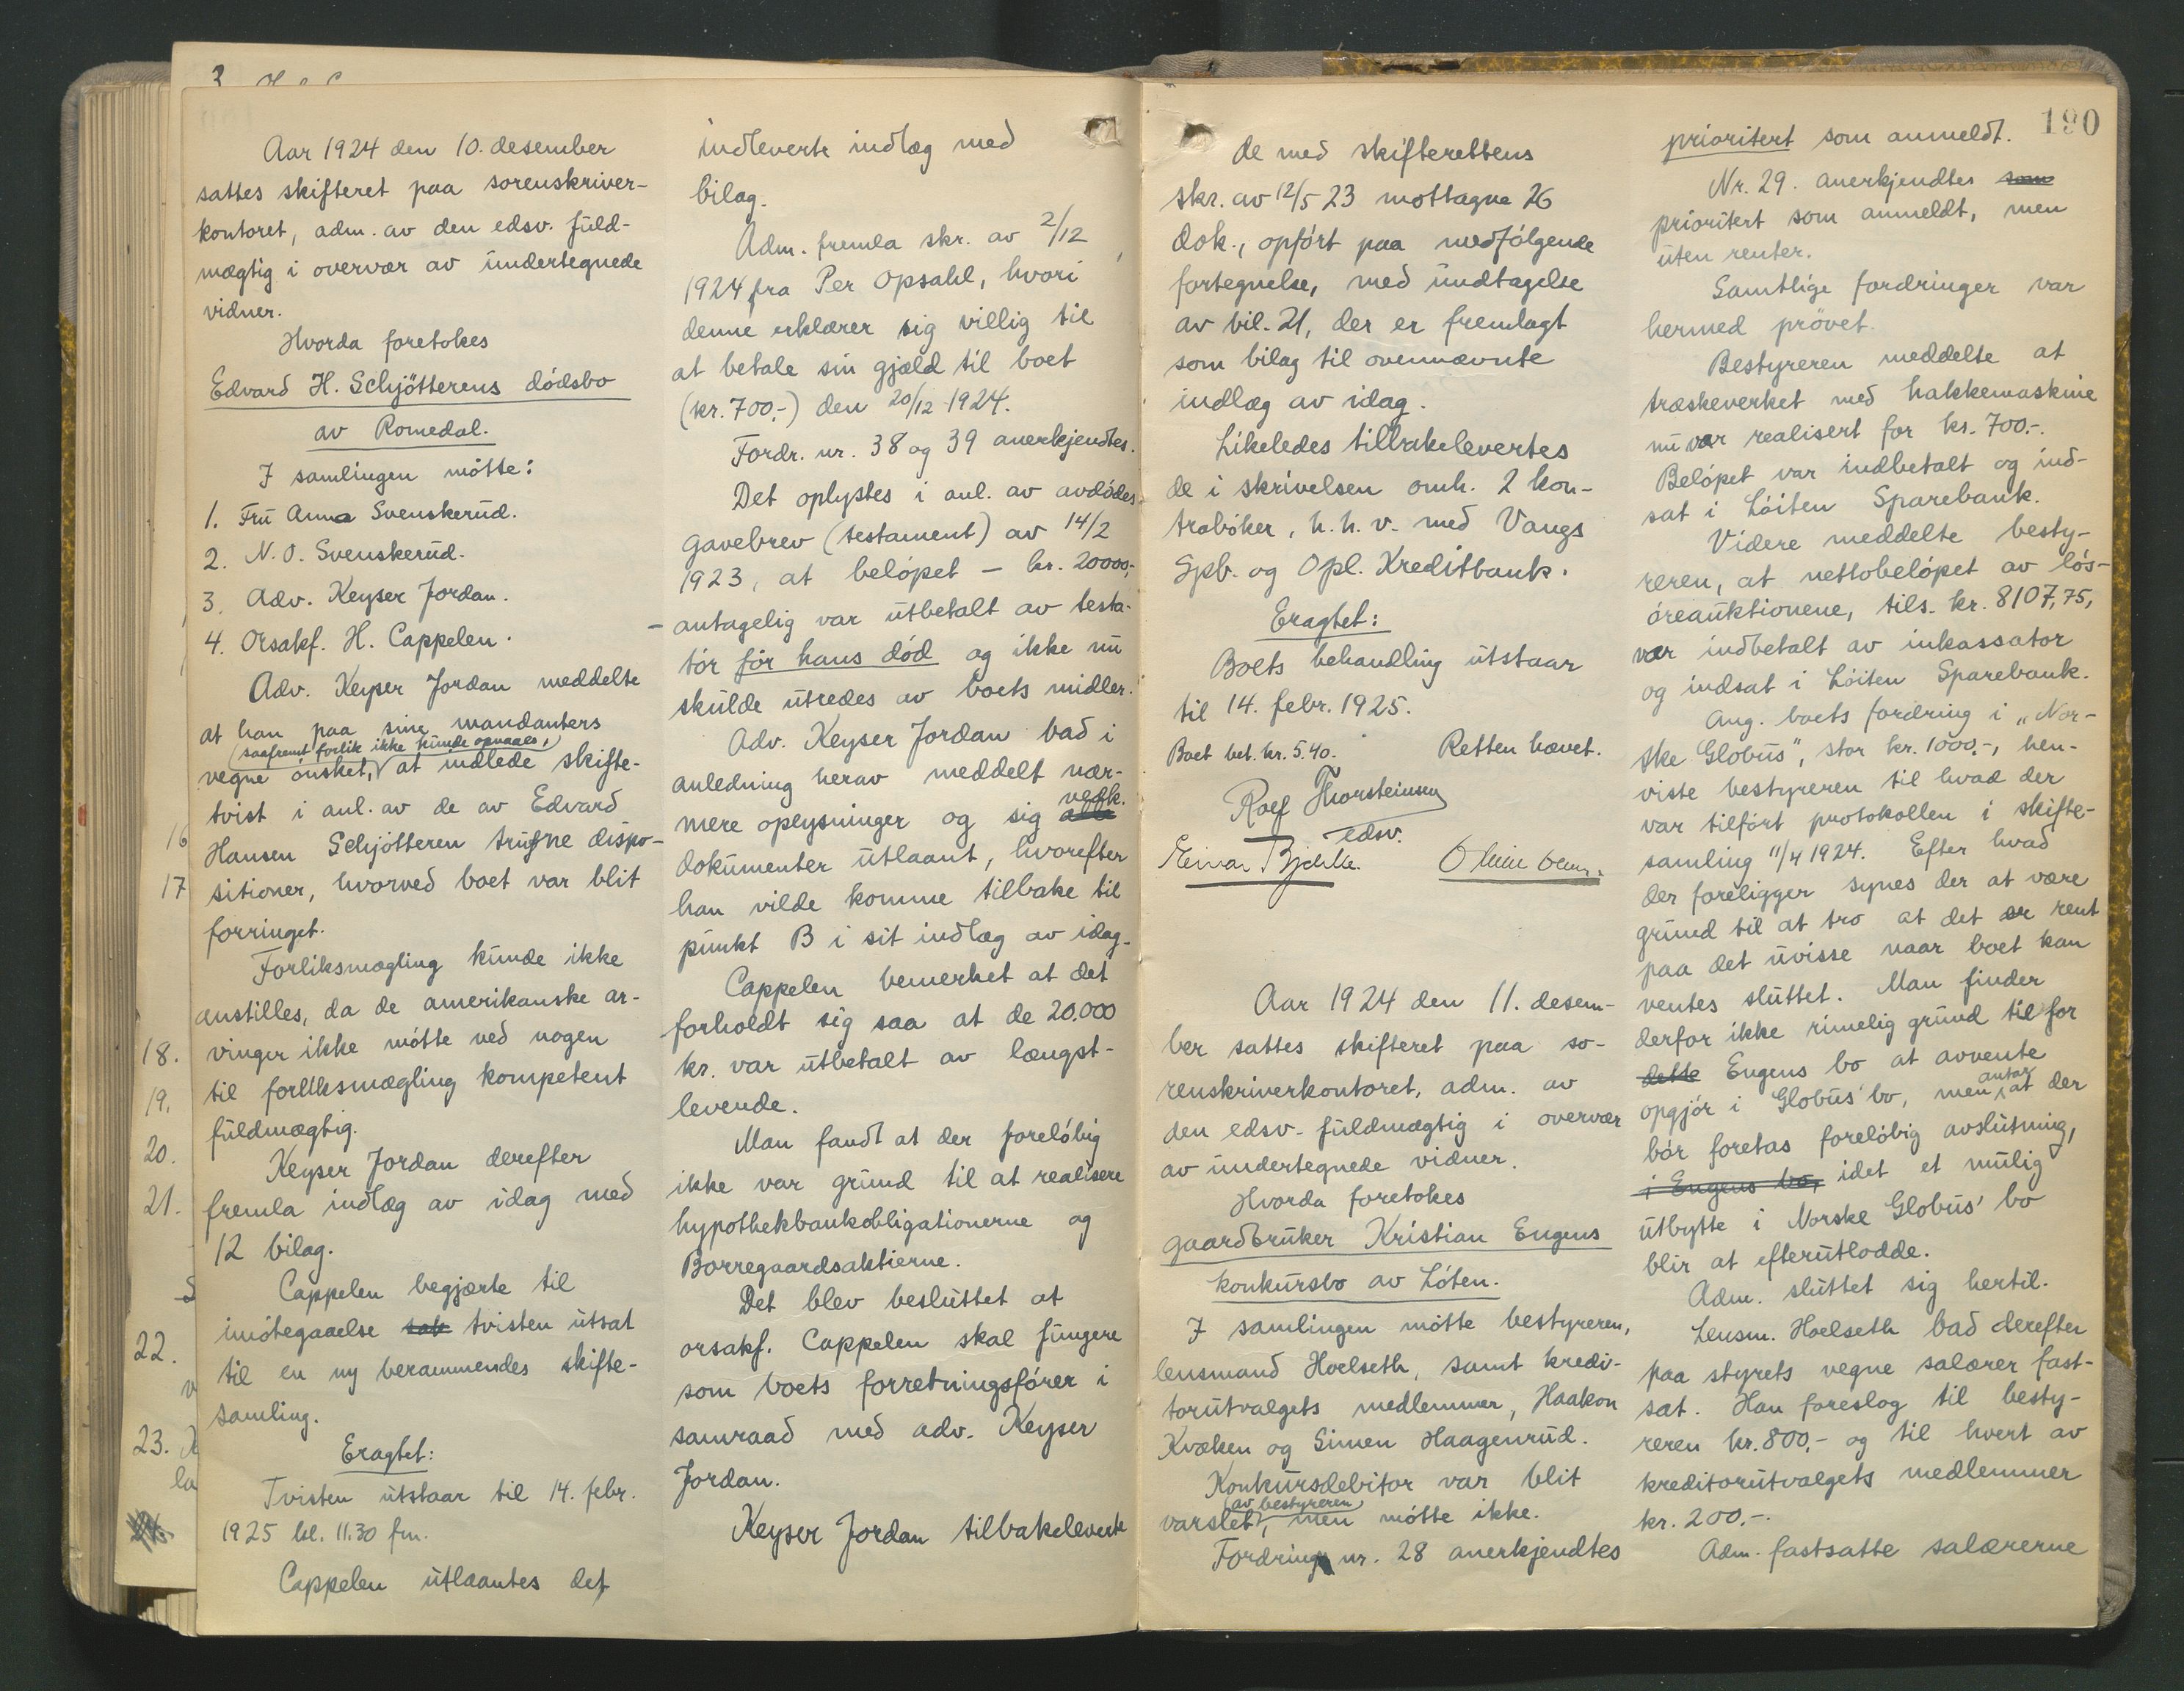 Aar 1924 den 10. desember
sattes skifteret paa sorenskriver-
kontoret, adm. av den edsv. fuld-
mægtig i overvær av undertegnede
vidner.
Hvorda foretokes
Edvard H. Schjötterens dödsbo
av Romedal.
I samlingen mötte:
1. Fru Anna Svenskerud.
2. N. O. Svenskerud.
3. Adv. Keyser Jordan.
4. Orsakf. H. Cappelen.
Adv. Keyser Jordan meddelte
at han paa sine mandanters
(saafremt forlik ikke kunde opnaaes,)
vegne önsket, at indlede skifte-
tvist i anl. av de av Edvard
Hansen Schjötteren trufne dispo-
sitioner, hvorved boet var blit
forringet.
Forliksmægling kunde ikke
anstilles, da de amerikanske ar-
vinger ikke mötte ved nogen
til forliksmægling kompetent
fuldmægtig.
Keyser Jordan derefter
fremla indlæg av idag med
12 bilag.
Cappelen begjærte til
imötegaaelse sak tvisten utsat
til en ny berammendes skifte-
samling.
Eragtet:
Tvisten utstaar til 14. febr.
1925 kl. 11.30 fm.
Cappelen utlaantes det
indleverte indlæg med
bilag.
Adm. fremla skr. av 2/12
1924 fra Per Opsahl, hvori
denne erklærer sig villig til
at betale sin gjæld til boet
(kr. 700,-) den 20/12 1924.
Fordr. nr. 38 og 39 anerkjendtes.
Det oplystes i anl. av avdödes
gavebrev (testament) av 14/2
1923, at belöpet – kr. 20000,-
– antagelig var utbetalt av testa-
tör för hans död og ikke nu
skulde utredes av boets midler.
Adv. Keyser Jordan bad i
anledning herav meddelt nær-
mere oplysninger og sig vedk.
dokumenter utlaant, hvorefter
han vilde komme tilbake til
punkt B i sit indlæg av idag.
Cappelen bemerket at det
forholdt sig saa at de 20.000
kr. var utbetalt av længst-
levende.
Man fandt at der forelöbig
ikke var grund til at realisere
hypothekbankobligationerne og
Borregaardsaktierne.
Det blev besluttet at
orsakf. Cappelen skal fungere
som boets forretningsförer i
samraad med adv. Keyser
Jordan.
Keyser Jordan tilbakeleverte
de med skifterettens
skr. av 12/5 23 mottagne 26
dok., opfört paa medfölgende
fortegnelse, med undtagelse
av bil. 21, der er fremlagt
som bilag til ovennævnte
indlæg av idag.
Likeledes tilbakelevertes
de i skrivelsen omh. 2 kon-
traböker, h. h. v. med Vangs
Spb. og Opl. Kreditbank.
Eragtet:
Boets behandling utstaar
til 14. febr. 1925.
Boet bet. kr. 5.40. Retten hævet.
Rolf Thorsteinsen
edsv.
Einar
Aar 1924 den 11. desem-
ber sattes skifteret paa so-
renskriverkontoret, adm. av
den edsv. fuldmægtig i overvær
av undertegnede vidner.
Hvorda foretokes
gaardbruker Kristian Engens
konkursbo av Löten.
I samlingen mötte bestyreren,
lensmand Hoelseth, samt kredi-
torutvalgets medlemmer, Haakon
Kvæken og Simen Haagenrud.
Konkursdebitor var blit
(av bestyreren)
varslet, men mötte ikke.
Fordring nr. 28 anerkjendtes
190
prioritert som anmeldt.
Nr. 29. anerkjendtes som
prioritert som anmeldt, men
uten renter.
Samtlige fordringer var
hermed prövet.
Bestyreren meddelte at
træskeverket med hakkemaskine
nu var realisert for kr. 700.-.
Belöpet var indbetalt og ind-
sat i Löiten Sparebank.
Videre meddelte besty-
reren, at nettobelöpet av lös-
öreauktionene, tils. kr. 8107,75,
var indbetalt av inkassator
og indsat i Löiten Sparebank.
Ang. boets fordring i „Nor-
ske Globus", stor kr. 1000.-, hen-
viste bestyreren til hvad der
var tilfört protokollen i skifte-
samling 11/4 1924. Efter hvad
der foreligger synes der at være
grund til at tro at det er rent
paa det uvisse naar boet kan
ventes sluttet. Man finder
derfor ikke rimelig grund til for
dette Engens bo at avvente
opgjör i Globus' bo, men antar at der
bör foretas forelöbig avslutning,
i Engens bo, idet et mulig
utbytte i Norske Globus' bo
blir at efterutlodde.
Adm. sluttet sig hertil.
Lensm. Hoelseth bad derefter
paa styrets vegne salærer fast-
sat. Han foreslog til besty-
reren kr. 800,- og til hvert av
kreditorutvalgets medlemmer
kr. 200.-.
Adm. fastsatte salærerne
16
17
18.
19.
20.
21.
22.
23.